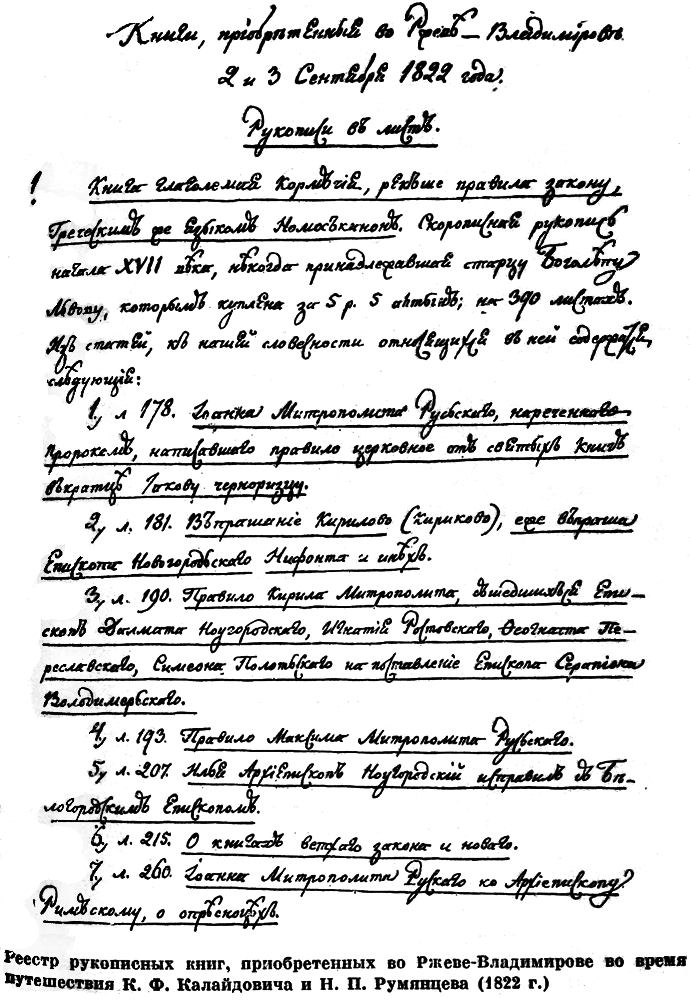 Книги, пріобрѣтенныя во Ржевѣ-Владиміровѣ
2 и 3 Сентября 1822 года.
Рукописи въ листъ.
! Книга глаголемая Кормчія, рекше правила закону,
Греческимъ же языкомъ Номоканонъ. Скорописная рукопись
начала XVII вѣка, нѣкогда принадлежавшая старцу Боголѣпу
Львову, которымъ куплена за 5 р. 5 алтынъ; на 390 листахъ.
Изъ статей, къ нашей словесности относящихся въ ней содержатся
слѣдующія:
1, л 178. Іоанна Митрополита Русьскаго, нареченнаго
пророкемъ, написавшаго правило церковное отъ святыхъ книгъ
въкратцѣ Іакову черноризцу.
2, л. 181. Въпрашаніе Кирилово (Кириково), еже въпраша
Епископа Новогородьскаго Нифонта и инѣхъ.
3, л. 190. Правило Кирила Митрополита, съшедшихся Епи-
скопъ Далмата Ноугородскаго, Игнатія Ростовскаго, Ѳеогнаста Пе-
реславскаго, Симеона Полотьскаго на поставленіе Епископа Серапіона
Володимерьскаго.
4, л. 193. Правило Максима Митрополита Русьскаго.
5, л. 207. Илья Архіепископъ Ноугородскій исправилъ съ Бѣ-
логородскимъ Епископомъ.
6, л. 215. О книгахъ ветхаго закона и новаго.
7, л. 260. Іоанна Митрополита Рускаго ко Архіепископу
Римьскому, о опрѣсноцѣхъ.
Реестр рукописных книг, приобретенных во Ржеве-Владимирове во время
путешествия К. Ф. Калайдовича и Н. П. Румянцева (1822 г.)